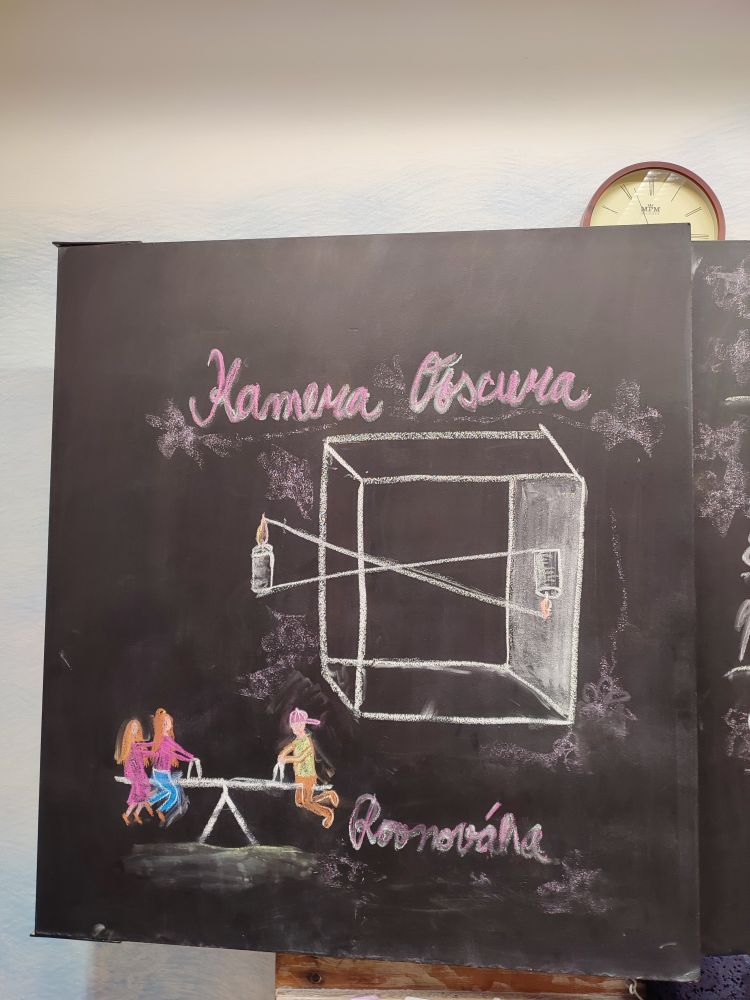 MPM
Kamera Obscura
Rovnováha